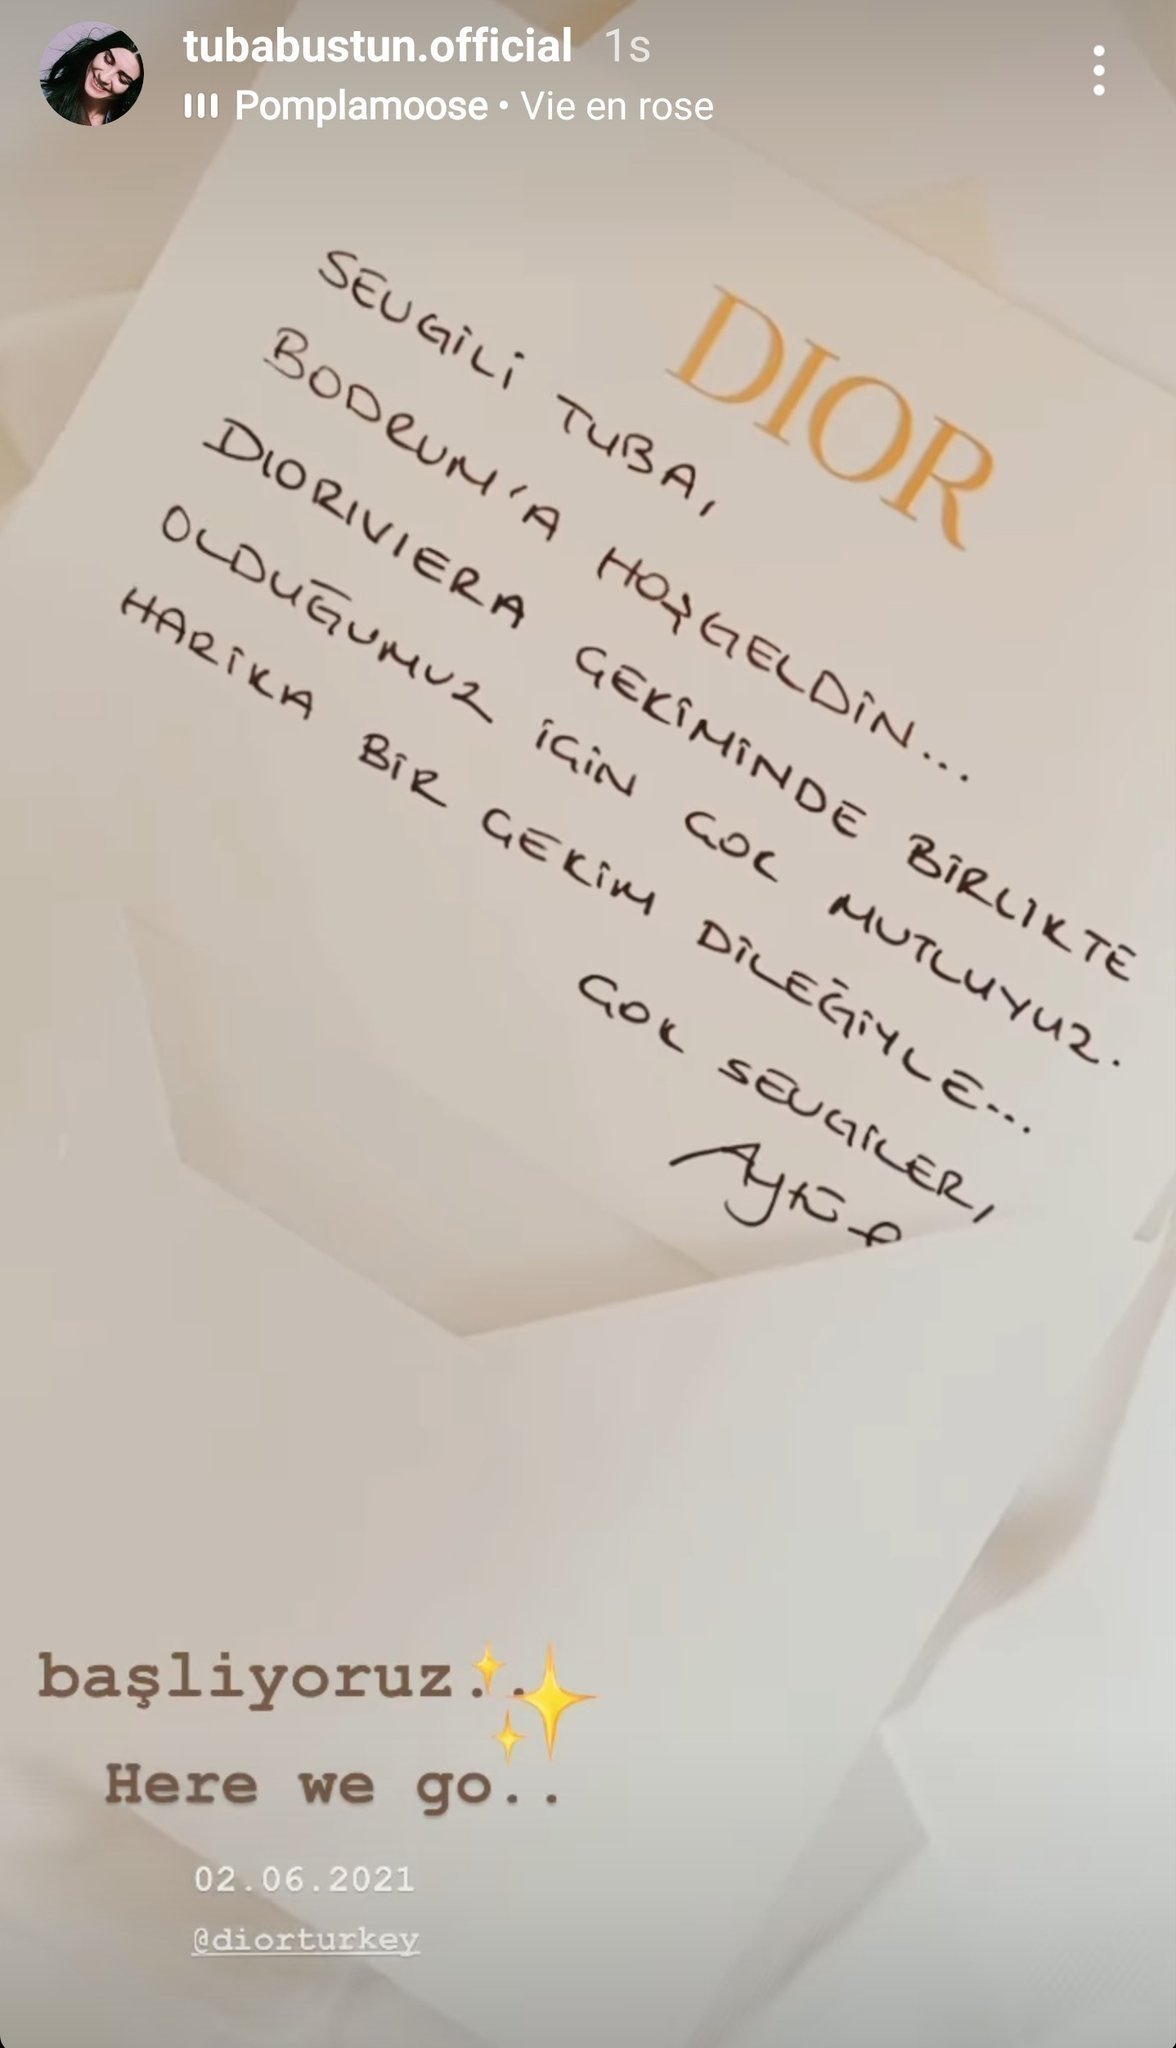 tubabustun.official 1s
Pomplamoose • Vie en rose
DIOR
SEVGİLİ TUBA,
BODRUM'A HOŞGELDİN...
DIORIVIERA ÇEKİMİNDE BİRLİKTE
OLDUĞUMUZ İÇİN ÇOK MUTLUYUZ.
HARİKA BİR ÇEKİM DİLEĞİYLE...
ÇOK SEVGİLER,
başliyoruz..
Here we go..
02.06.2021
@diorturkey